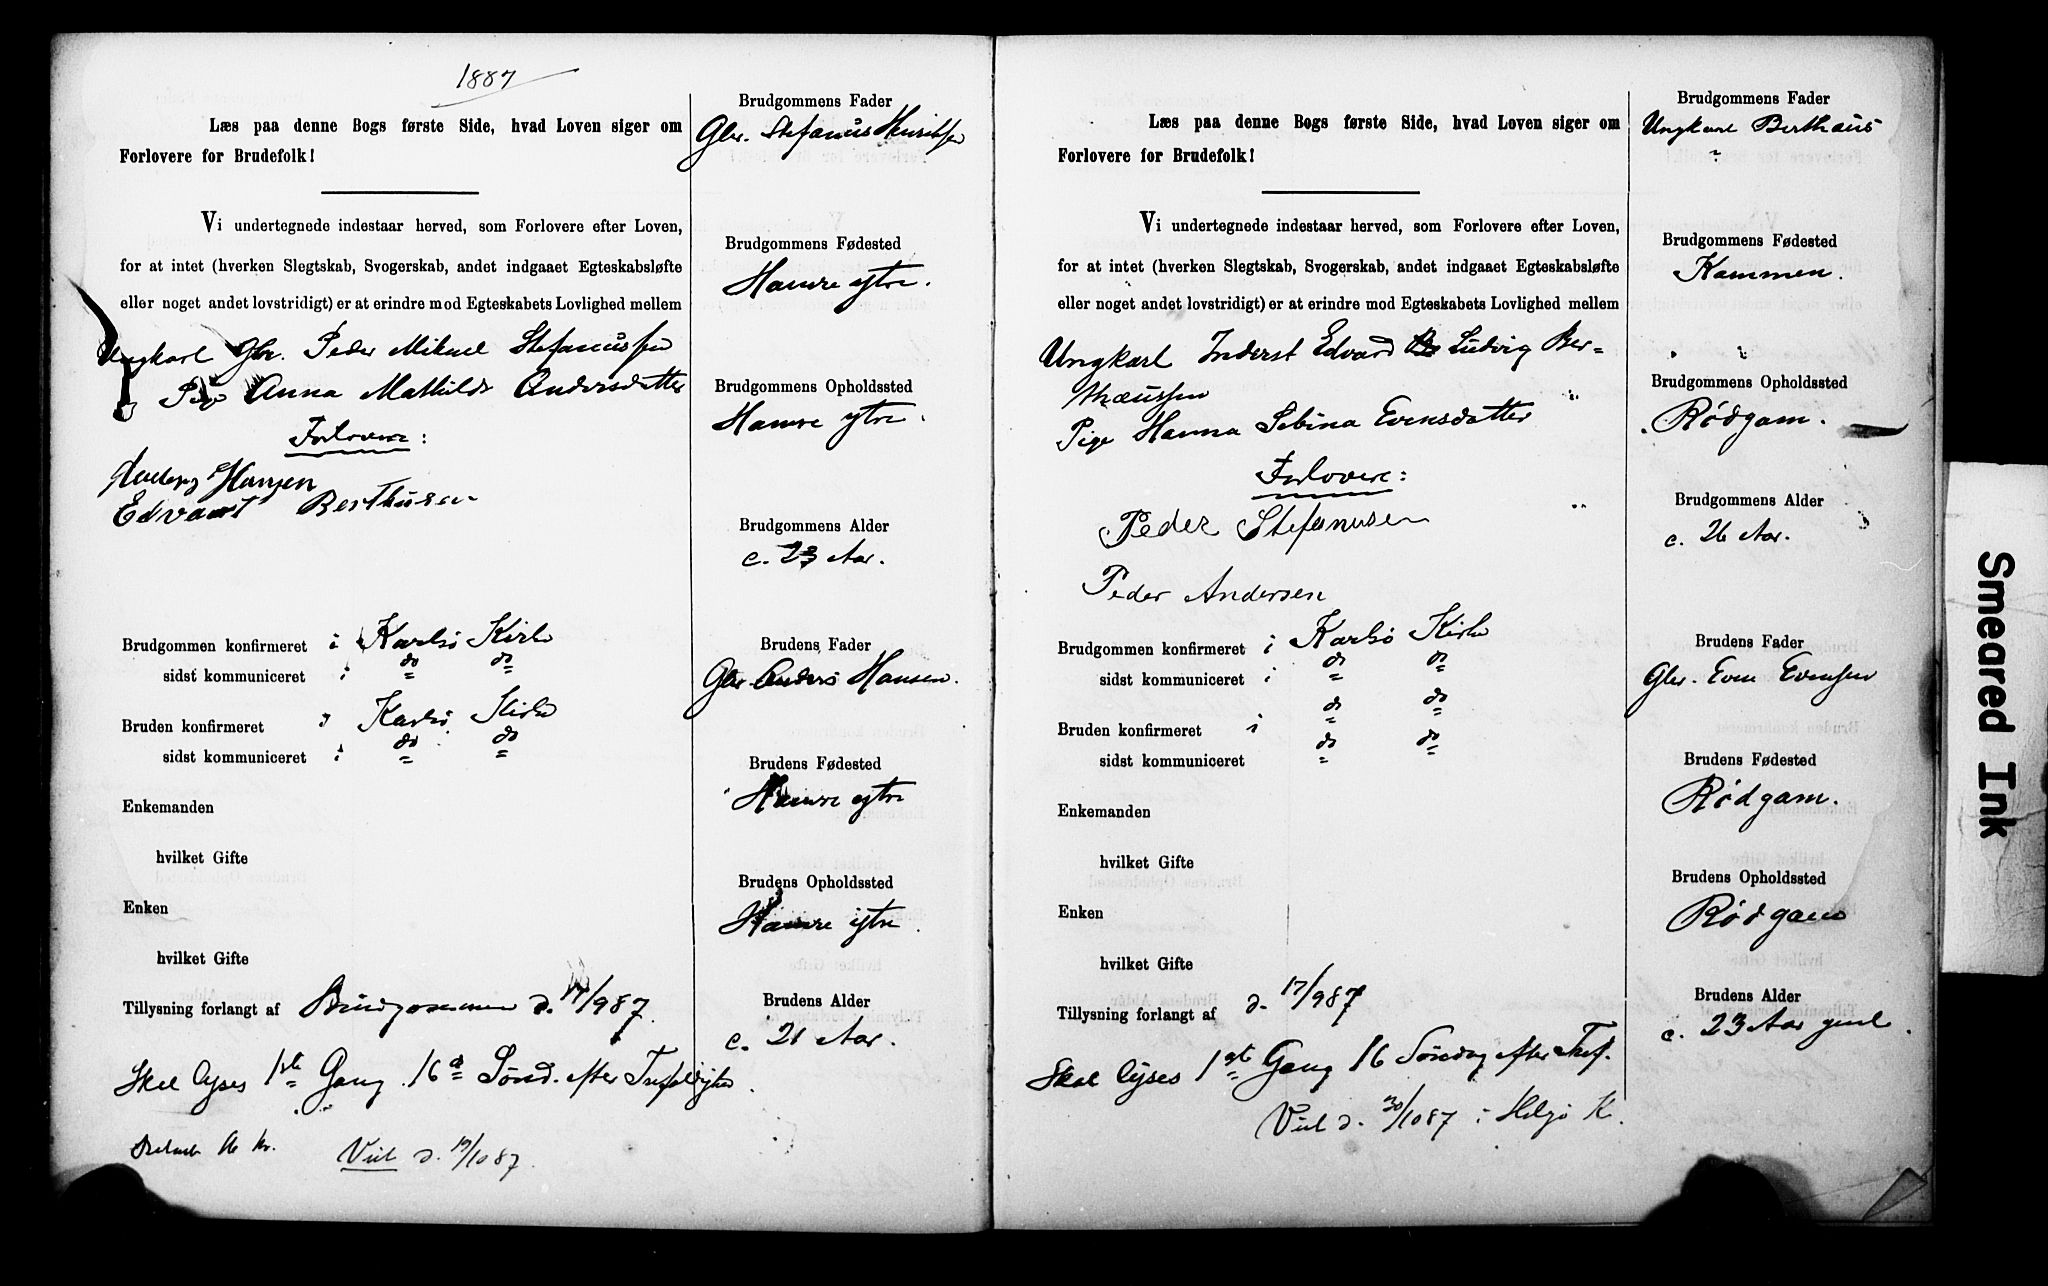 1887
Læs paa denne Bogs første Side, hvad Loven siger om
Forlovere for Brudefolk!
Vi undertegnede indestaar herved, som Forlovere efter Loven,
for at intet (hverken Slegtskab, Svogerskab, andet indgaaet Egteskabsløfte
eller noget andet lovstridigt) er at erindre mod Egteskabets Lovlighed mellem
Ungkarl Gbr. Peder Mikael Stefanussen
og Pige Anna Mathilde Andersdatter
Forlovere:
Anders Hansen
Edvart Berthusen
Brudgommen konfirmeret i Karlsø Kirke
sidst kommuniceret i do do
Bruden konfirmeret i Karlsø Kirke
sidst kommuniceret i do do
Enkemanden
hvilket Gifte
Enken
hvilket Gifte
Tillysning forlangt af Brudgommen d. 17/9 87.
Skal lyses 1ste Gang 16d Sønd. efter Trefoldighed.
Viet d. 19/10 87.
Brudgommens Fader
Gbr. Stefanus
Brudgommens Fødested
Hamre ytre.
Brudgommens Opholdssted
Hamre ytre.
Brudgommens Alder
c. 23 Aar.
Brudens Fader
Gbr. Anders Hansen.
Brudens Fødested
Hamre ytre
Brudens Opholdssted
Hamre ytre.
Brudens Alder
c. 21 Aar.
Læs paa denne Bogs første Side, hvad Loven siger om
Forlovere for Brudefolk!
Vi undertegnede indestaar herved, som Forlovere efter Loven,
for at intet (hverken Slegtskab, Svogerskab, andet indgaaet Egteskabsløfte
eller noget andet lovstridigt) er at erindre mod Egteskabets Lovlighed mellem
Ungkarl Inderst Edvard Ludvig Ber-
thæussen
Pige Hanna Sebina Evensdatter
Forlovere:
Peder Stefanusen
Peder Andersen
Brudgommen konfirmeret i Karlsø Kirke
sidst kommuniceret i do do
Bruden konfirmeret i do do
sidst kommuniceret do do
Enkemanden
hvilket Gifte
Enken
hvilket Gifte
Tillysning forlangt af d. 17/9 87
Skal lyses 1ste Gang 16 Søndag efter Tref.
Viet d. 30/10 87 i Helgø K.
Brudgommens Fader
Ungkarl Berthæus
Brudgommens Fødested
Kammen.
Brudgommens Opholdssted
Rødgam.
Brudgommens Alder
c. 26 Aar.
Brudens Fader
Gbr. Even Evensen
Brudens Fødested
Rødgam.
Brudens Opholdssted
Rødgam
Brudens Alder
c. 23 Aar gml.
Smeared Ink